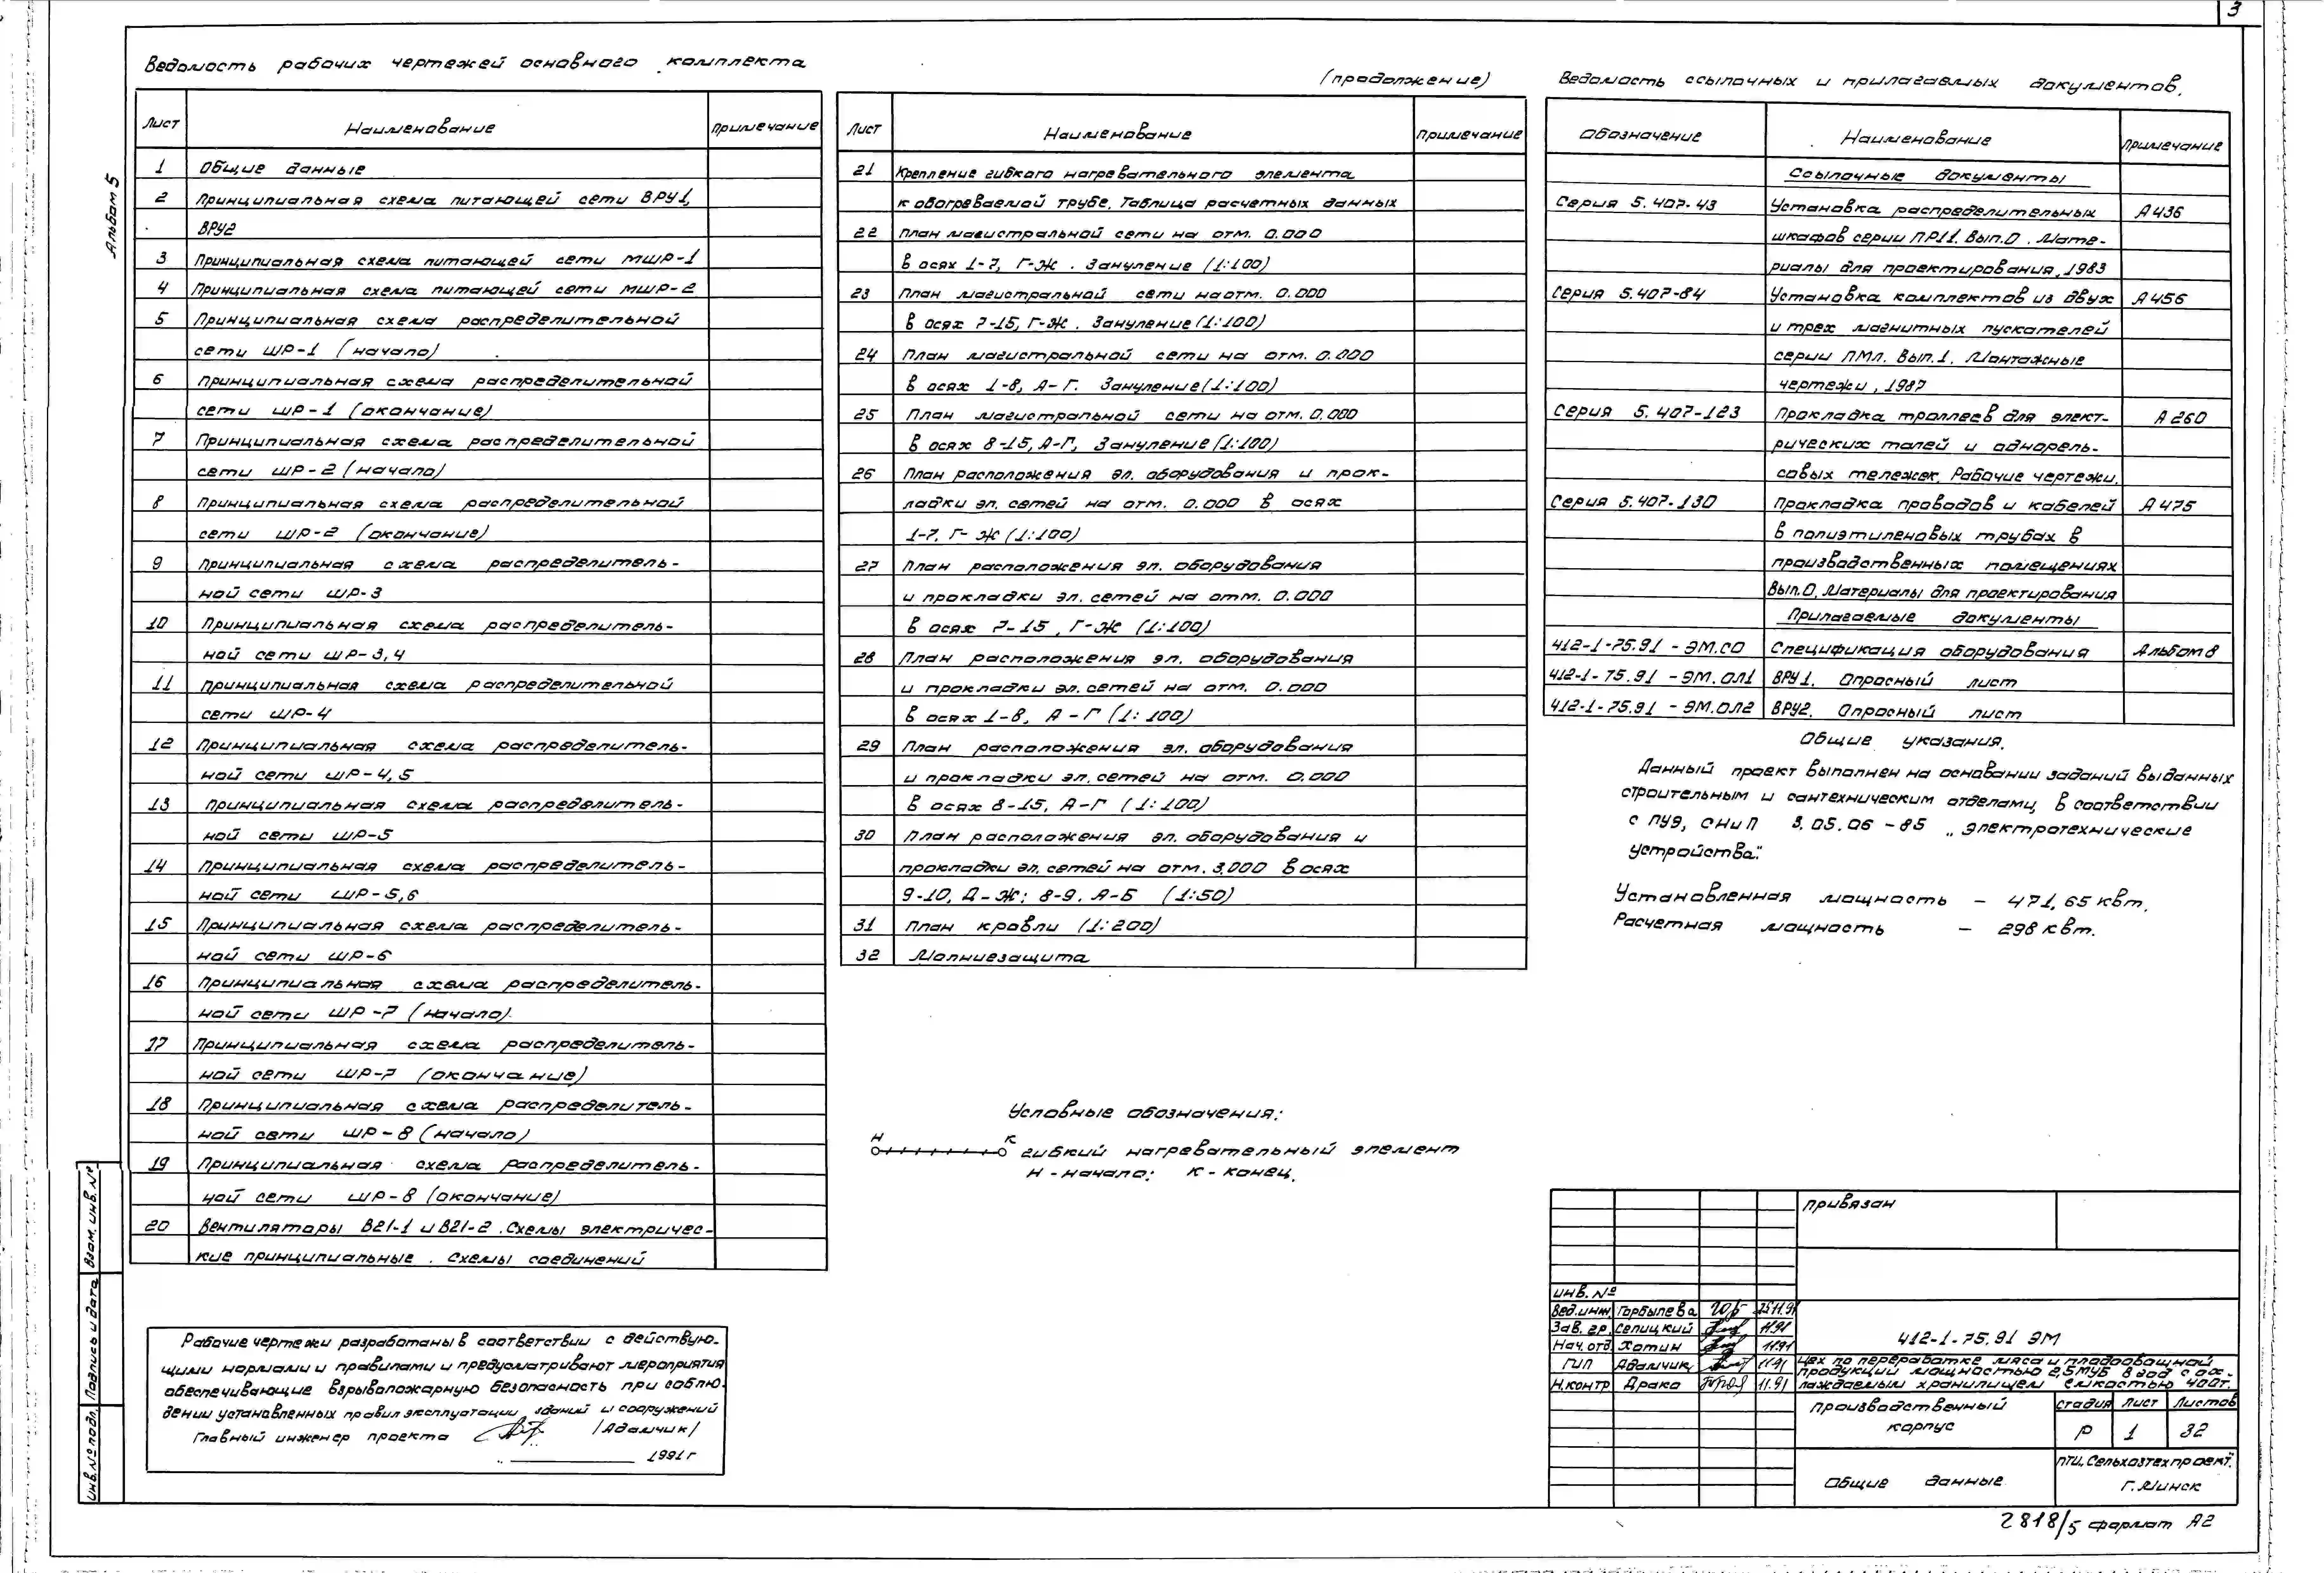 3
Альбом 5
Ведомость рабочих чертежей основного комплекта
Лист Наименование Примечание
1 Общие данные
2 Принципиальная схема питающей сети ВРУ1,
ВРУ2
3 Принципиальная схема питающей сети МШР-1
4 Принципиальная схема питающей сети МШР-2
5 Принципиальная схема распределительной
сети ШР-1 (начало)
6 Принципиальная схема распределительной
сети ШР-1 (окончание)
7 Принципиальная схема распределительной
сети ШР-2 (начало)
8 Принципиальная схема распределительной
сети ШР-2 (окончание)
9 Принципиальная схема распределитель-
ной сети ШР-3
10 Принципиальная схема распределитель-
ной сети ШР-3,4
11 Принципиальная схема распределительной
сети ШР-4
12 Принципиальная схема распределитель-
ной сети ШР-4,5
13 Принципиальная схема распределитель-
ной сети ШР-5
14 Принципиальная схема распределитель-
ной сети ШР-5,6
15 Принципиальная схема распределитель-
ной сети ШР-6
16 Принципиальная схема распределитель-
ной сети ШР-7 (начало)
17 Принципиальная схема распределитель-
ной сети ШР-7 (окончание)
18 Принципиальная схема распределитель-
ной сети ШР-8 (начало)
19 Принципиальная схема распределитель-
ной сети ШР-8 (окончание)
20 Вентиляторы В21-1 и В21-2. Схемы электричес-
кие принципиальные. Схемы соединений
(продолжение)
Лист Наименование Примечание
21 Крепление гибкого нагревательного элемента
к обогреваемой трубе. Таблица расчетных данных
22 План магистральной сети на отм. 0.000
в осях 1-7, Г-Ж. Зануление (1:100)
23 План магистральной сети на отм. 0.000
в осях 7-15, Г-Ж. Зануление (1:100)
24 План магистральной сети на отм. 0.000
в осях 1-8, А-Г. Зануление (1:100)
25 План магистральной сети на отм. 0.000
в осях 8-15, А-Г, Зануление (1:100)
26 План расположения эл. оборудования и прок-
ладки эл. сетей на отм. 0.000 в осях
1-7, Г-Ж (1:100)
27 План расположения эл. оборудования
и прокладки эл. сетей на отм. 0.000
в осях 7-15, Г-Ж (1:100)
28 План расположения эл. оборудования
и прокладки эл. сетей на отм. 0.000
в осях 1-8, А-Г (1:100)
29 План расположения эл. оборудования
и прокладки эл. сетей на отм. 0.000
в осях 8-15, А-Г (1:100)
30 План расположения эл. оборудования и
прокладки эл. сетей на отм. 3.000 в осях
9-10, Д-Ж; 8-9, А-Б (1:50)
31 План кровли (1:200)
32 Молниезащита
Ведомость ссылочных и прилагаемых документов.
Обозначение Наименование Примечание
Ссылочные документы
Серия 5.407-43 Установка распределительных А436
шкафов серии ПР11. Вып.0. Мате-
риалы для проектирования, 1983
Серия 5.407-84 Установка комплектов из двух А456
и трех магнитных пускателей
серии ПМЛ. Вып.1. Монтажные
чертежи, 1987
Серия 5.407-123 Прокладка троллеев для элект- А260
рических талей и однорель-
совых тележек. Рабочие чертежи.
Серия 5.407-130 Прокладка проводов и кабелей А475
в полиэтиленовых трубах в
производственных помещениях
Вып.0. Материалы для проектирования
Прилагаемые документы
412-1-75.91 - ЭМ.СО Спецификация оборудования Альбом 8
412-1-75.91 - ЭМ.ОЛ1 ВРУ1. Опросный лист
412-1-75.91 - ЭМ.ОЛ2 ВРУ2. Опросный лист
Общие указания.
Данный проект выполнен на основании заданий выданных
строительным и сантехническим отделами, в соответствии
с ПУЭ, СНиП 3.05.06-85 „Электротехнические
устройства".
Установленная мощность - 471,65 кВт.
Расчетная мощность - 298 кВт.
Условные обозначения:
Н К
гибкий нагревательный элемент
Н - начало; К - конец.
Рабочие чертежи разработаны в соответствии с действую-
щими нормами и правилами и предусматривают мероприятия
обеспечивающие взрывопожарную безопасность при соблю-
дении установленных правил эксплуатации зданий и сооружений
Главный инженер проекта /Адамчик/
1991г
Взам. инв. №
Подпись и дата
Инв. № подл.
Привязан
Инв. №
Вед. инж. Горбылева 25.11.91
Зав. гр. Селицкий 11.91
Нач. отд. Хотин 11.91
ГИП Адамчик 11.91
Н.контр Драко 11.91
412-1-75.91 ЭМ
Цех по переработке мяса и плодоовощной
продукции мощностью 2,5 МУБ в год с ох-
лаждаемым хранилищем емкостью 400т.
Производственный
корпус
Стадия Лист Листов
Р 1 32
Общие данные
ПТИ „Сельхозтехпроект"
г. Минск
2818/5 формат А2